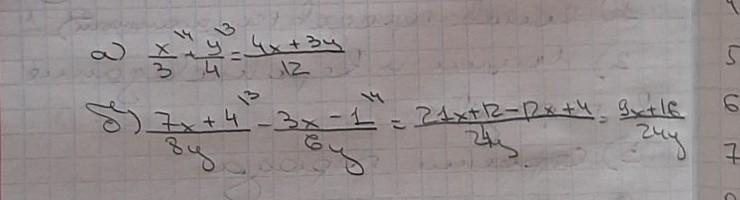 а) x/3^{\4} + y/4^{\3} = (4x+3y)/12
б) (7x+4)/8y^{\3} - (3x-1)/6y^{\4} = (21x+12-12x+4)/24y = (9x+16)/24y
5
6
7